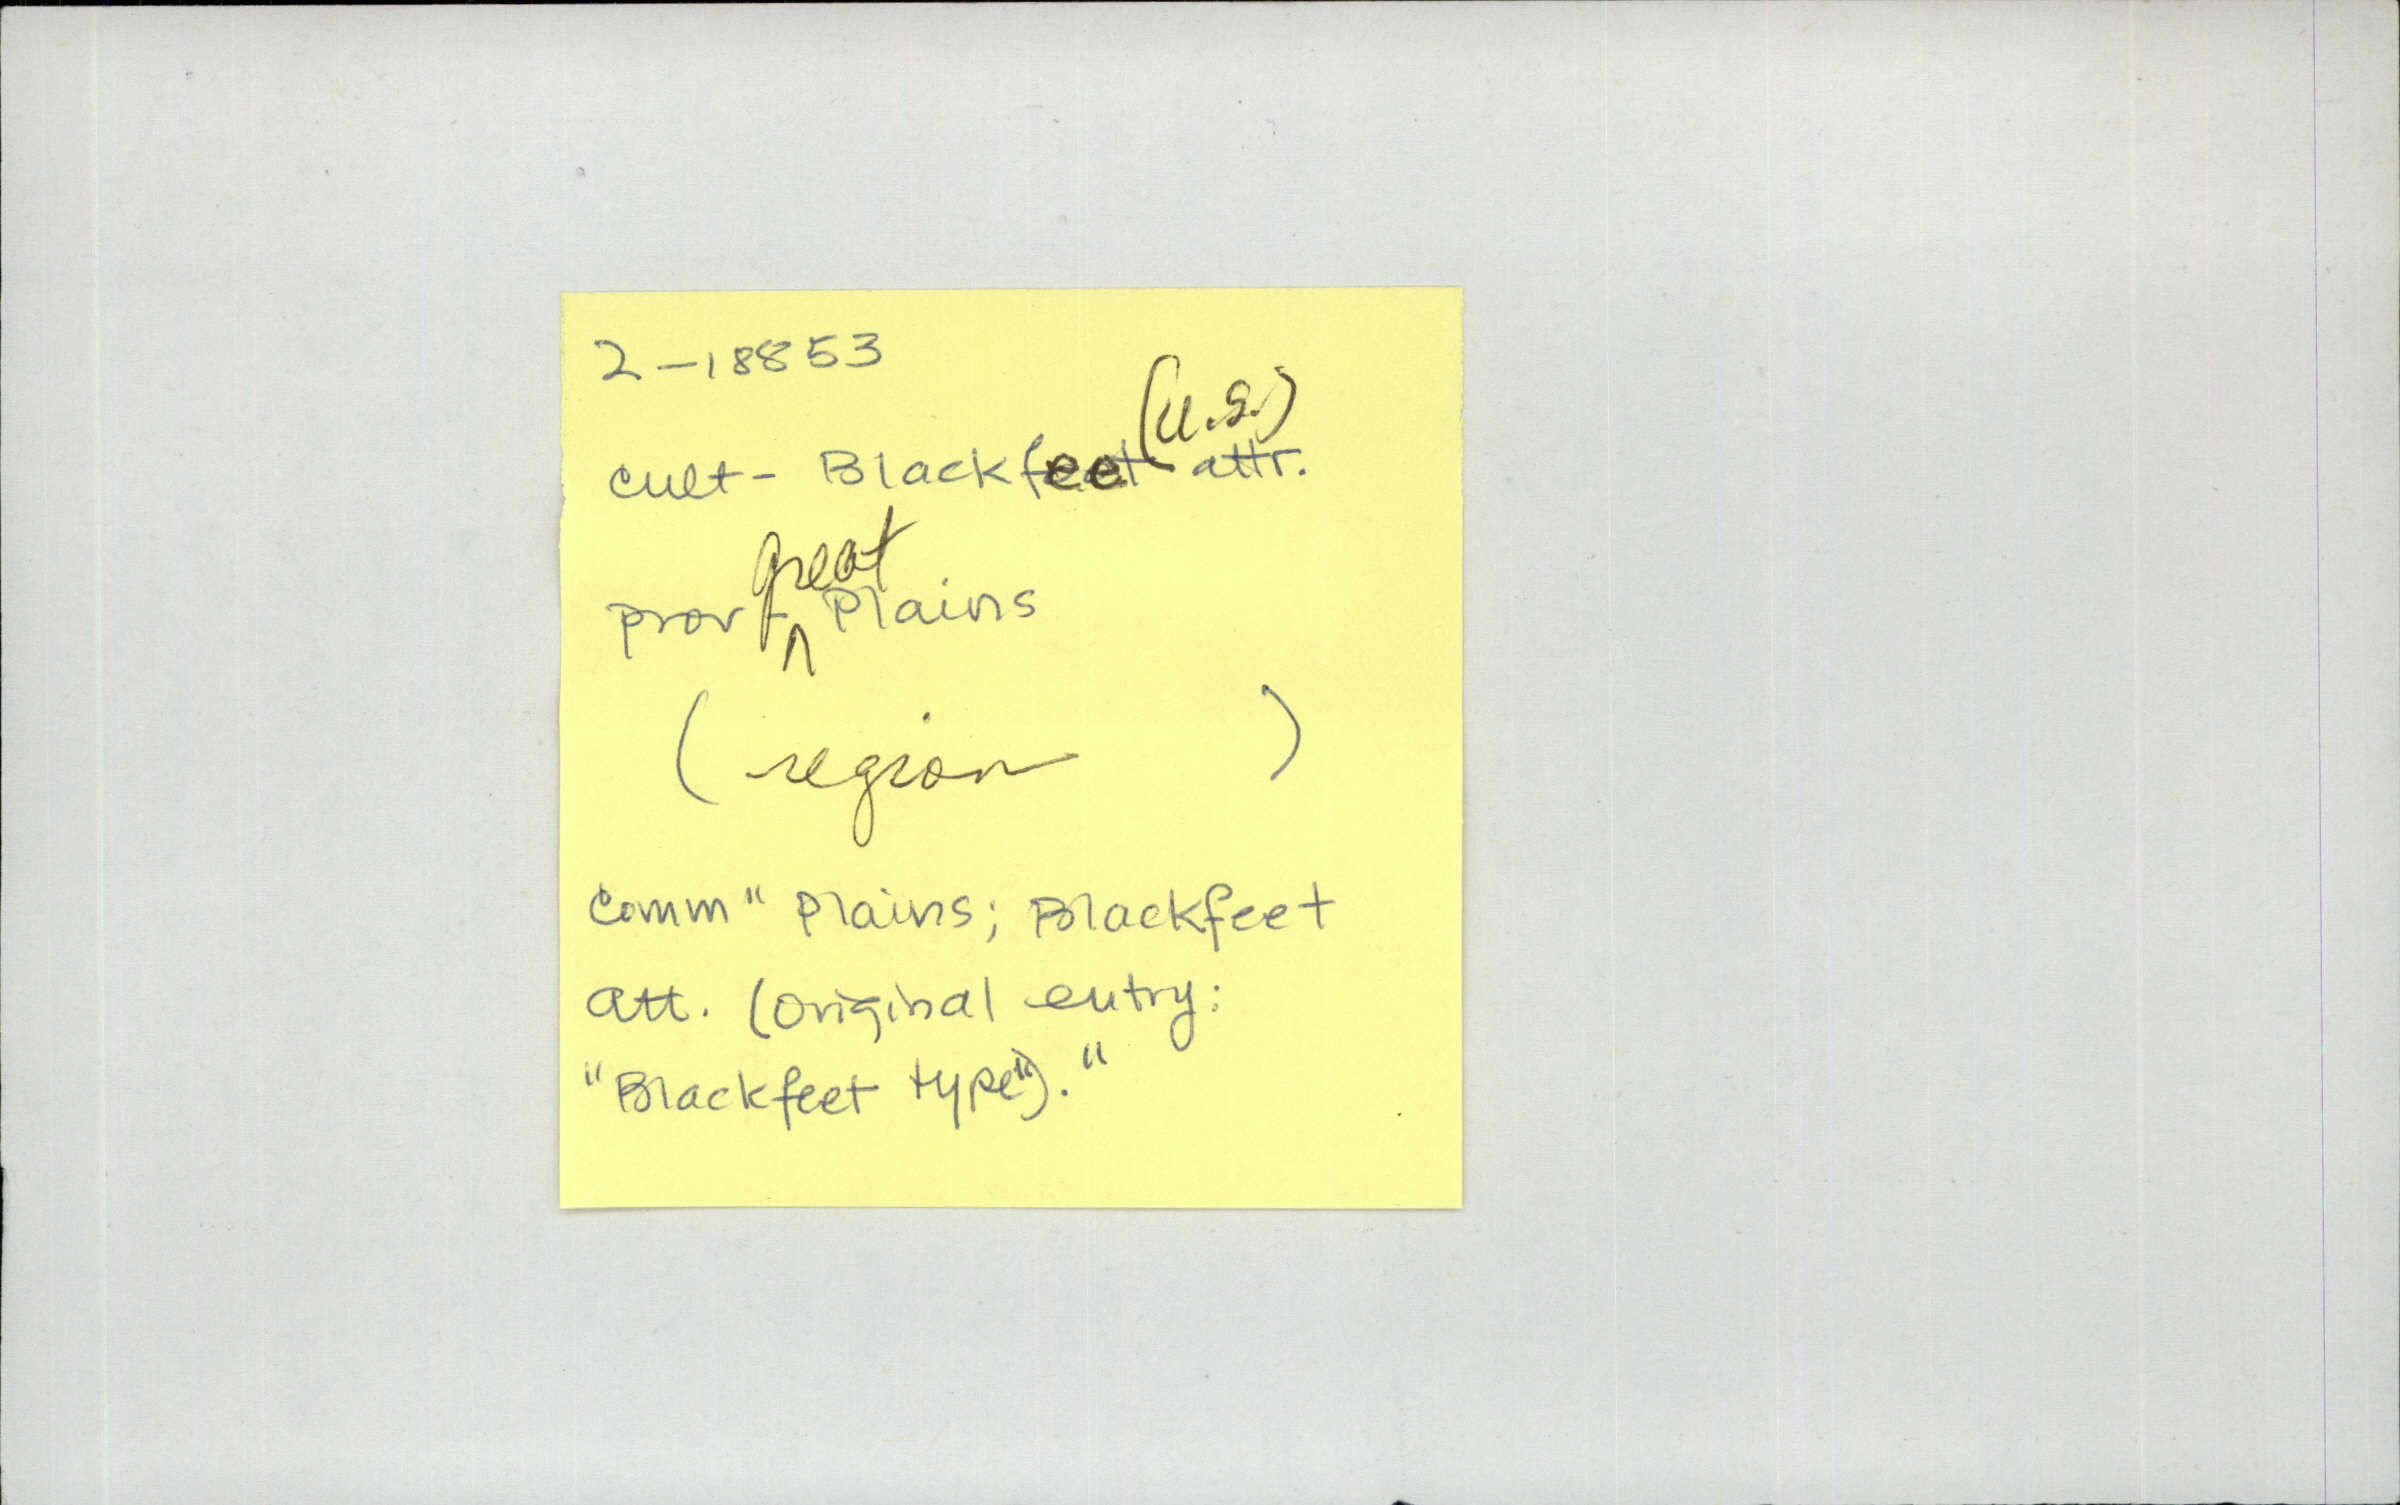 2-18853
cult- Blackfeet (U.S.) attr.
prov - great Plains
(region)
Comm " Plains; Blackfeet
att. (original entry:
"Blackfeet type")."